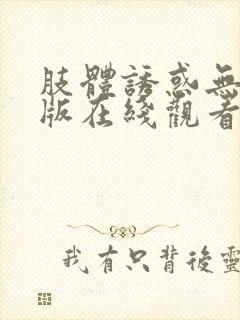 肢體誘惑無
版在綫觀看
我有只背後靈